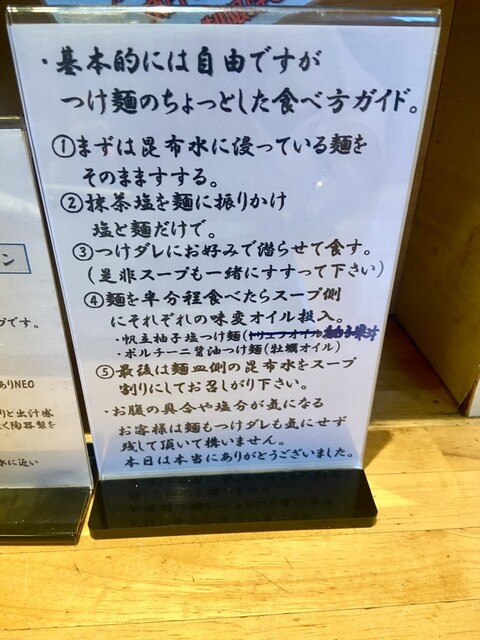 ・基本的には自由ですが
つけ麺のちょっとした食べ方ガイド。
①まずは昆布水に浸っている麺を
そのまますする。
②抹茶塩を麺に振りかけ
塩と麺だけで。
③つけダレにお好みで潜らせて食す。
(是非スープも一緒にすすって下さい)
④麺を半分程食べたらスープ側
にそれぞれの味変オイル投入。
・帆立柚子塩つけ麺(トリュフオイル柚子果汁
・ポルチーニ醤油つけ麺(牡蠣オイル)
⑤最後は麺皿側の昆布水をスープ
割りにしてお召しがり下さい。
・お腹の具合や塩分が気になる
お客様は麺もつけダレも気にせず
残して頂いて構いません。
本日は本当にありがとうございました。
ン
プです。
ありNEO
りと出汁感
く陶器製を
水に近い